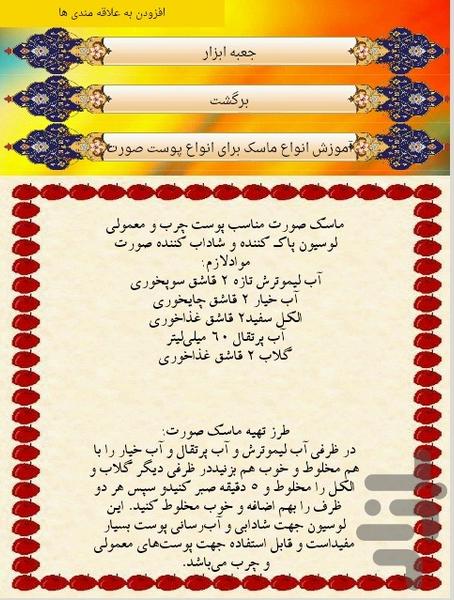 افزودن به علاقه مندی ها
جعبه ابزار
برگشت
آموزش انواع ماسک برای انواع پوست صورت
ماسک صورت مناسب پوست چرب و معمولی
لوسیون پاک کننده و شاداب کننده صورت
موادلازم:
آب لیموترش تازه ۲ قاشق سوپخوری
آب خیار ۲ قاشق چایخوری
الکل سفید۲ قاشق غذاخوری
آب پرتقال ۶۰ میلی‌لیتر
گلاب ۲ قاشق غذاخوری
طرز تهیه ماسک صورت:
در ظرفی آب لیموترش و آب پرتقال و آب خیار را با
هم مخلوط و خوب هم بزنیددر ظرفی دیگر گلاب و
الکل را مخلوط و ۵ دقیقه صبر کنیدو سپس هر دو
ظرف را بهم اضافه و خوب مخلوط کنید. این
لوسیون جهت شادابی و آب‌رسانی پوست بسیار
مفیداست و قابل استفاده جهت پوست‌های معمولی
و چرب می‌باشد.
بازار